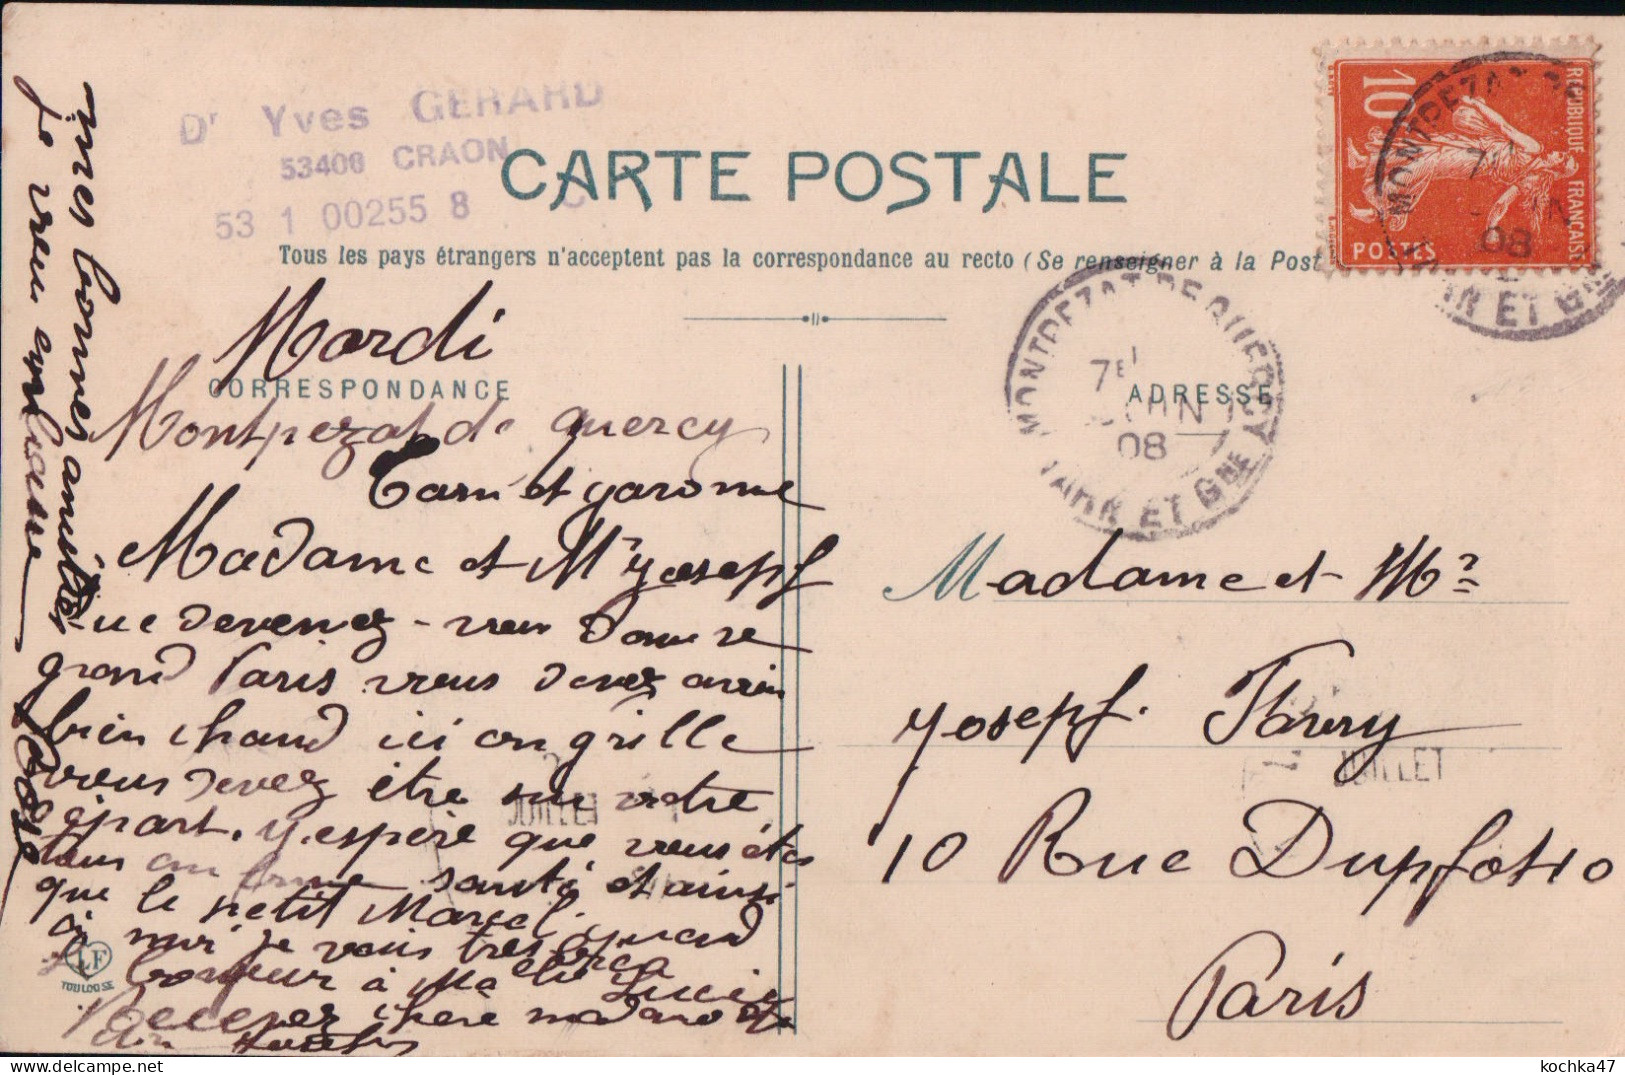 Dr Yves GERARD
53400 CRAON
53 1 00255 8 C
CARTE POSTALE
Tous les pays étrangers n'acceptent pas la correspondance au recto (Se renseigner à la Post
REPUBLIQUE FRANÇAISE
10
POSTES
MONTPEZAT
08
ET GNE
MONTPEZAT DE QUERCY
7E
JUIN
08
TARN ET GNE
CORRESPONDANCE
ADRESSE
Mardi
Montpezat de quercy
Tarn et garonne
Madame et Mr yosepf
que devenez-vous dans ce
grand Paris vous devez avoir
bien chaud ici on grille
vous devez être sur votre
départ. y.espère que vous étes
tous en bonne santé et ainsi
que le petit Marcel.
je vais tres
bonjeur à Mlle Lucie
Recevez chère madame et
mes bonnes amitiés
Je vous embrasse
Madame et Mr
yosepf. Favry
10 Rue Dupfotio
Paris
JUILLET
JUILLET
LF
TOULOUSE
kochka47